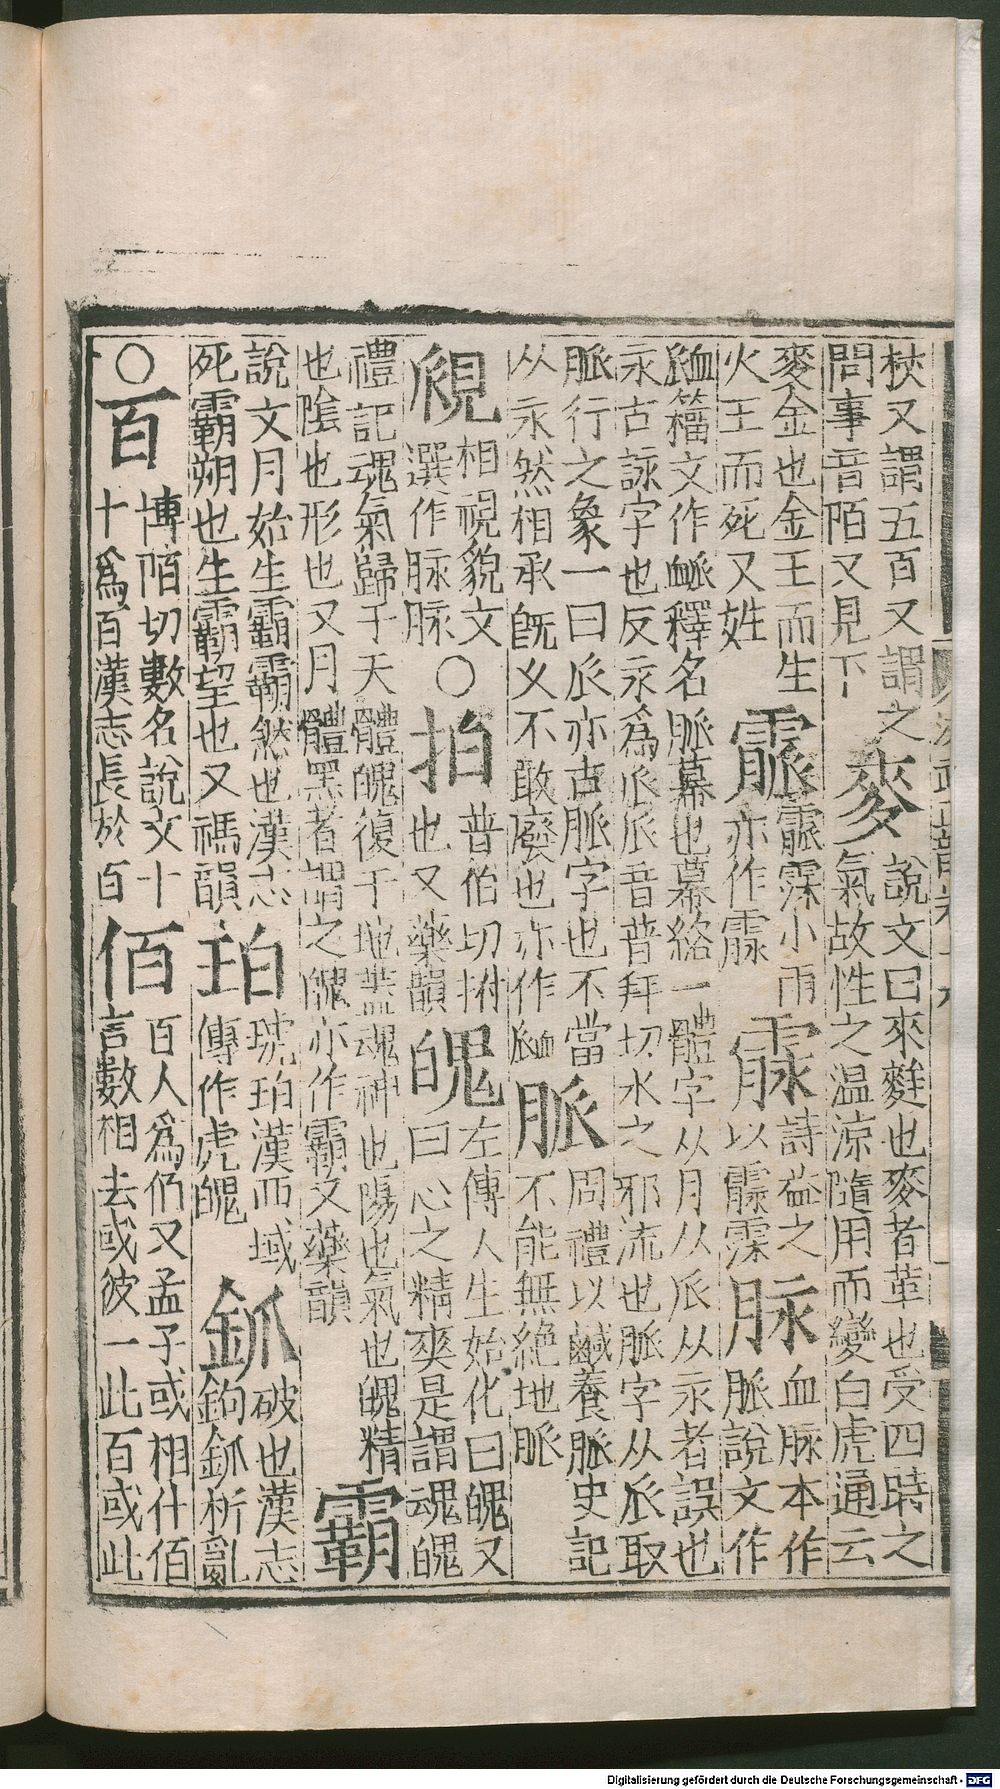 洪武正韻卷
梜又謂五百又謂之
問事音陌又見下
麥
說文曰來麰也麥者革也受四時之
氣故性之温涼隨用而變白虎通云
麥金也金王而生
火王而死又姓
霢
霢霂小雨
亦作霡
霡
詩益之
以霡霂
脉
血脉本作
脈說文作
䘑籕文作𧖴釋名脈幕也幕絡一體字从月从𠂢从永者誤也
永古詠字也反永爲𠂢𠂢音普拜切水之邪流也脈字从𠂢取
脈行之象一曰𠂢亦古脈字也不當
从永然相承旣乆不敢廢也亦作䘑
脈
周禮以鹹養脈史記
不能無絶地脈
覛
相視貌文
選作脉脉
○拍
普伯切拊
也又藥韻
魄
左傳人生始化曰魄又
曰心之精爽是謂魂魄
禮記魂氣歸于天體魄復于地葢魂神也陽也氣也魄精
也陰也形也又月體黑者謂之魄亦作霸又藥韻
霸
說文月始生霸霸然也漢志
死霸朔也生霸望也又禡韻
珀
琥珀漢西域
傳作虎魄
釽
破也漢志
鉤釽析亂
○百
博陌切數名說文十
十爲百漢志長於百
佰
百人爲仍又孟子或相什佰
言數相去或彼一此百或此
Digitalisierung gefördert durch die Deutsche Forschungsgemeinschaft - DFG